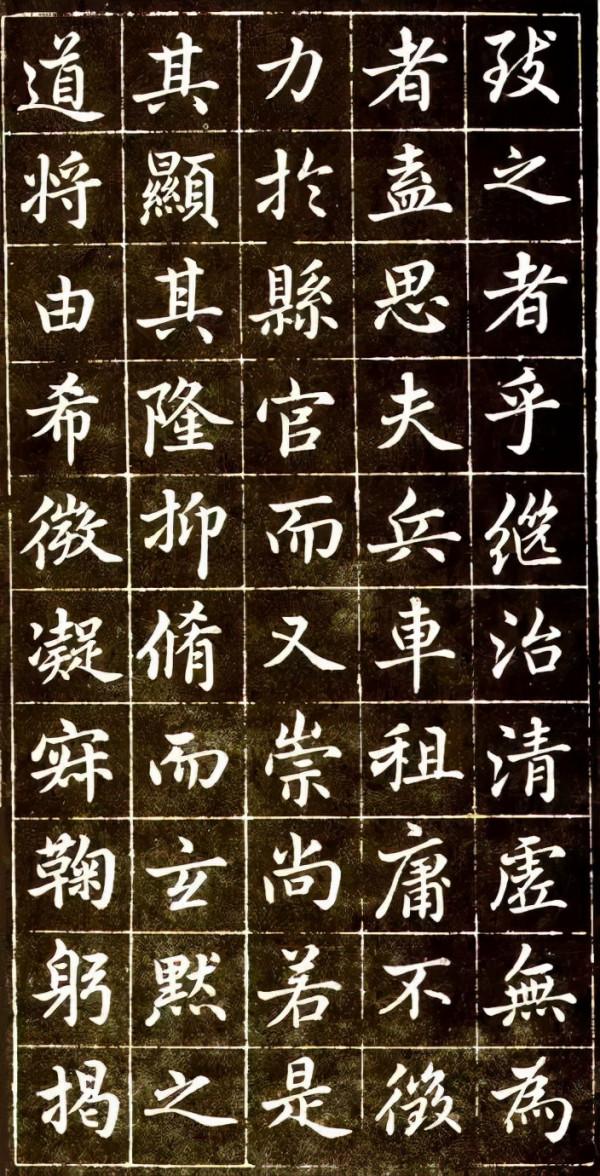 致之者乎継治清虚無為
者盍思夫兵車租庸不徵
力扵縣官而又崇尚若是
其顯其隆抑脩而玄默之
道将由希微凝寂鞠躬揭